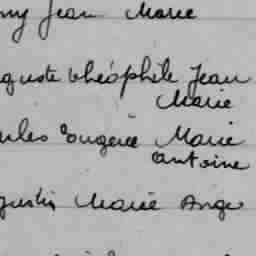 my Jean Marie
guste théophile Jean
Marie
ules Eugène Marie
antoine
gustin Marie Ange